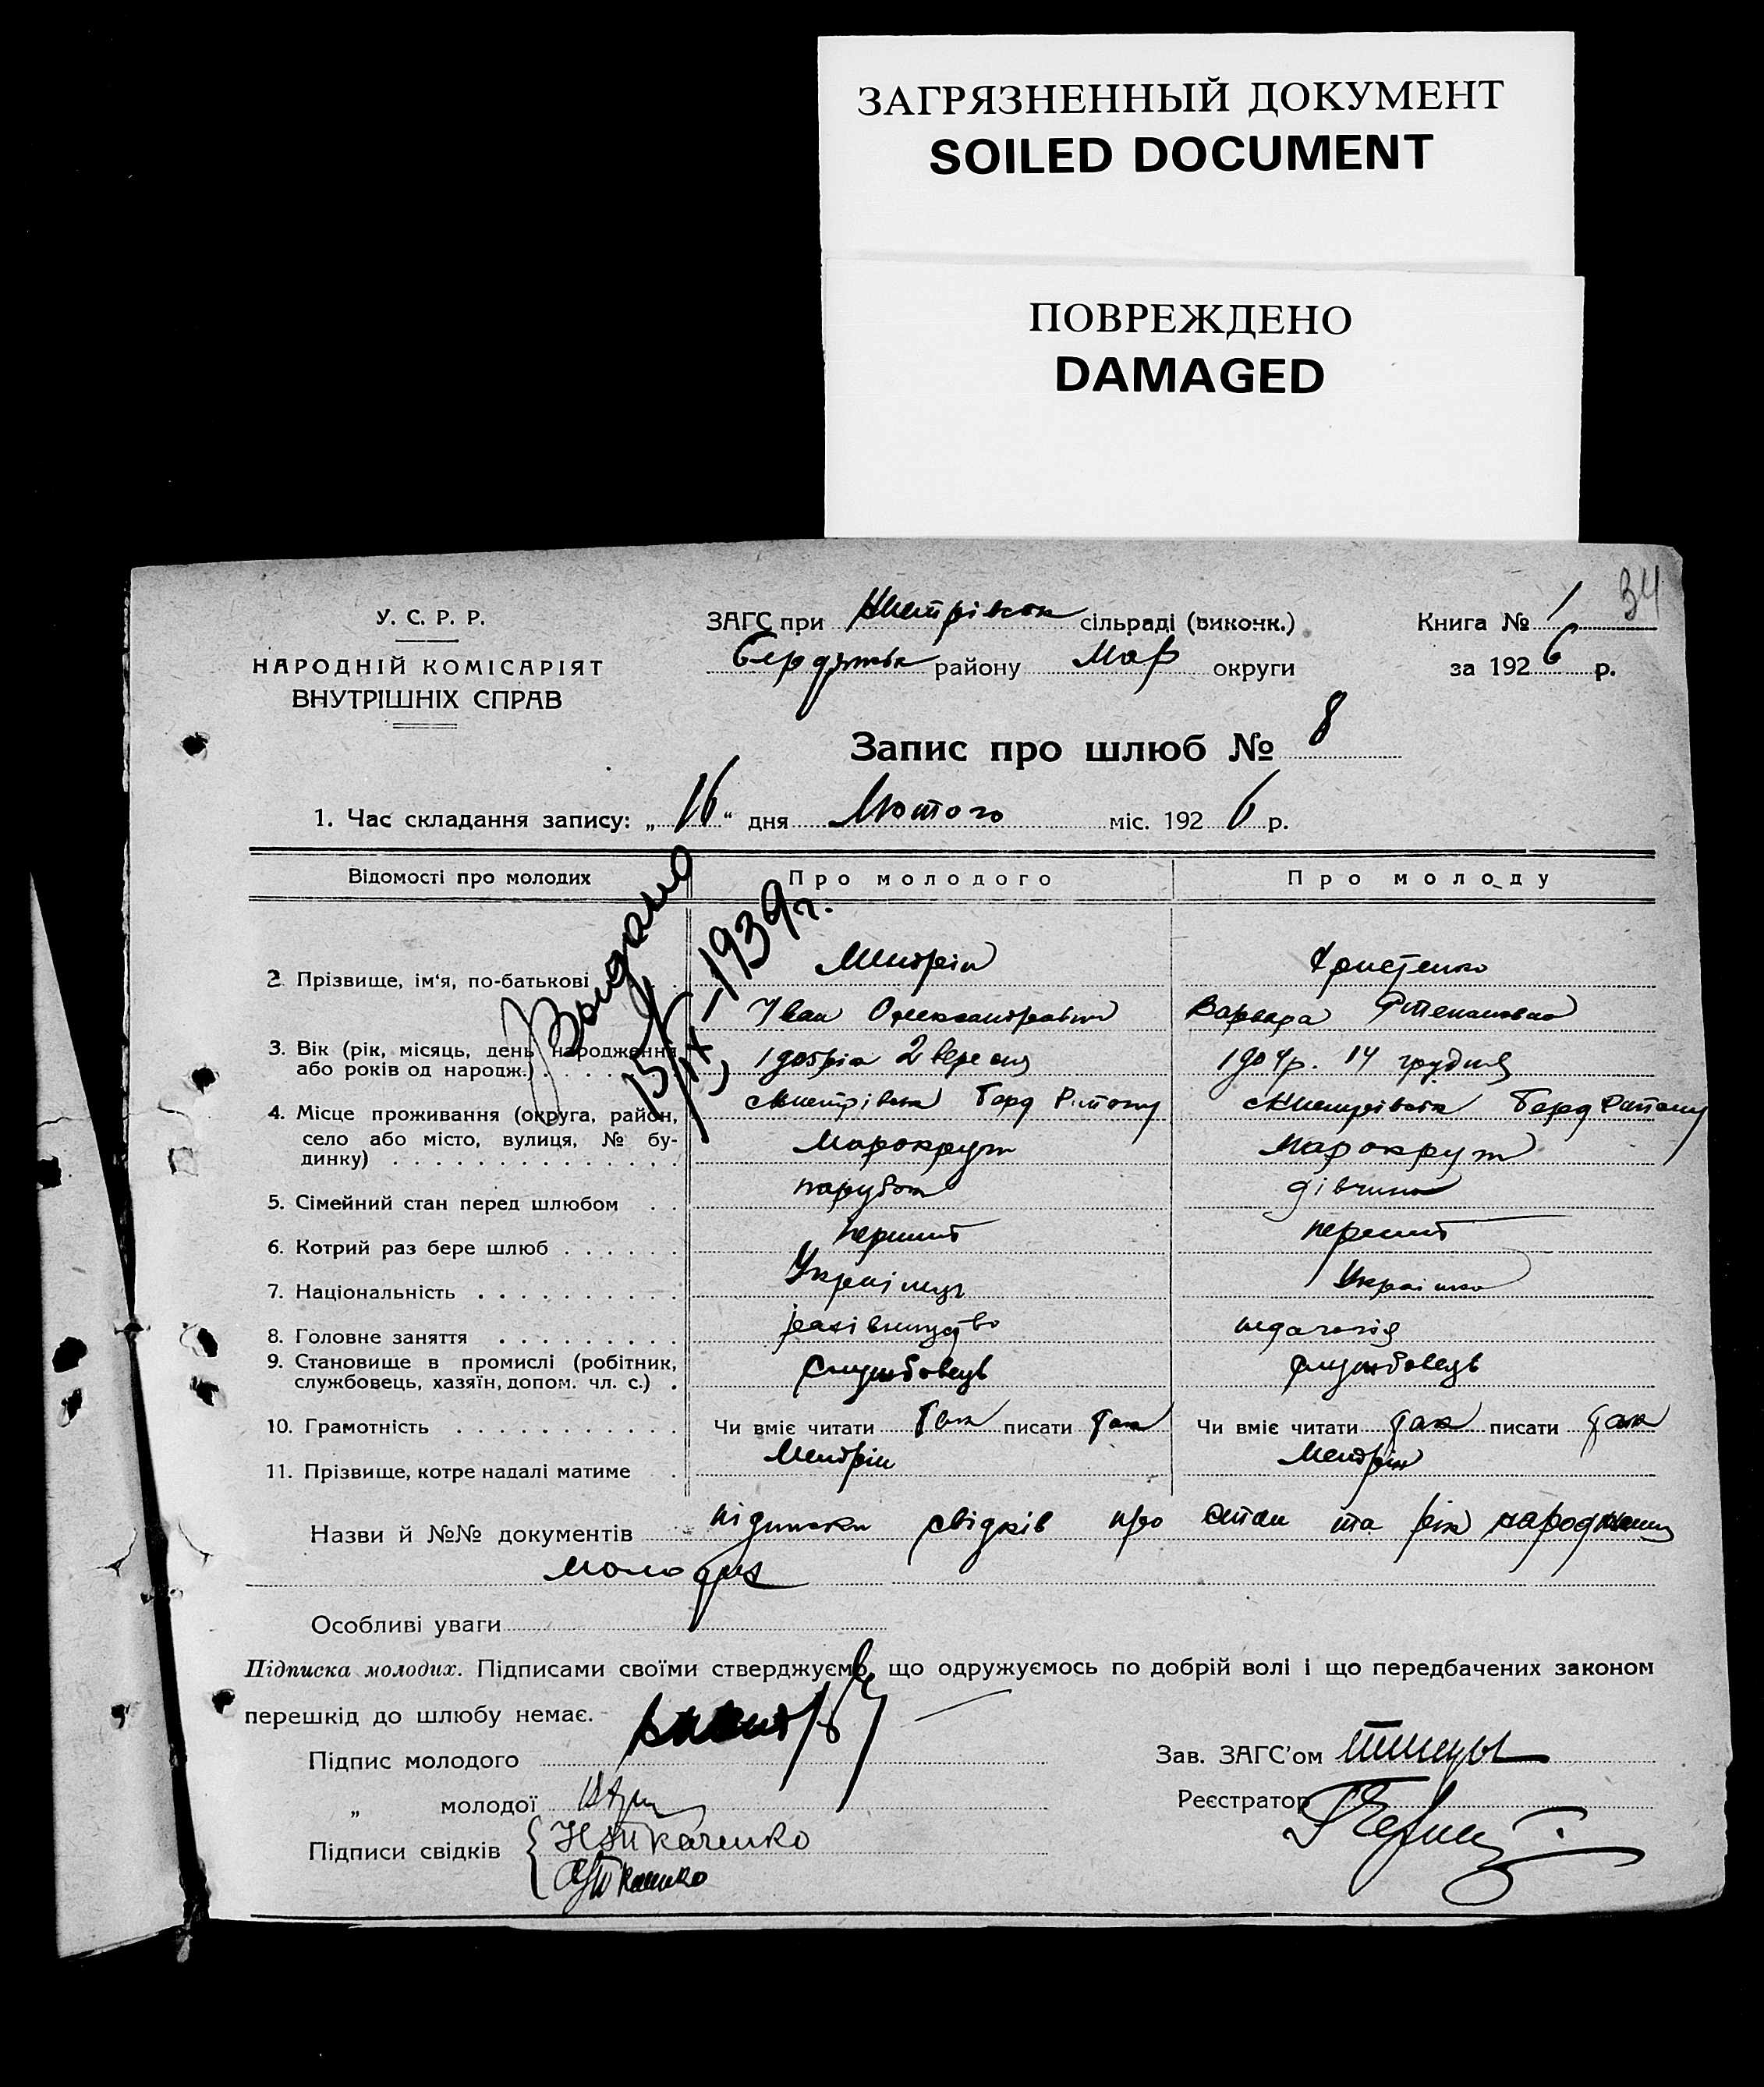 ЗАГРЯЗНЕННЫЙ ДОКУМЕНТ
SOILED DOCUMENT
ПОВРЕЖДЕНО
DAMAGED
34
У. С. Р. Р.
НАРОДНІЙ КОМІСАРІЯТ
ВНУТРІШНІХ СПРАВ
ЗАГС при сільраді (виконк.)
району Мар округи
Книга № 1
за 1926 р.
Запис про шлюб № 8
1. Час складання запису: „16“ дня Лютого міс. 1926 р.
Відомості про молодих Про молодого Про молоду
Выдано
15/IX-1939 г.
2 Прізвище, ім'я, по-батькові
Іван Олександрович Варвара Степановна
3. Вік (рік, місяць, день народження
або років од народж.) 2 вересня 1904р. 14 грудня
4. Місце проживання (округа, район,
село або місто, вулиця, № бу-
динку) Марокруги Марокруги
5. Сімейний стан перед шлюбом парубок дівчина
6. Котрий раз бере шлюб перший перший
7. Національність Українець Українка
8. Головне заняття рахівництво педагогія
9. Становище в промислі (робітник,
службовець, хазяїн, допом. чл. с.) службовець службовець
10. Грамотність Чи вміє читати так писати так Чи вміє читати так писати так
11. Прізвище, котре надалі матиме
Назви й №№ документів підписки свідків про стан та рік народження
молодих
Особливі уваги
Підписка молодих. Підписами своїми стверджуємо, що одружуємось по добрій волі і що передбачених законом
перешкід до шлюбу немає.
Підпис молодого
„ молодої
Підписи свідків Ткаченко
Ткаченко
Зав. ЗАГС'ом
Реєстратор